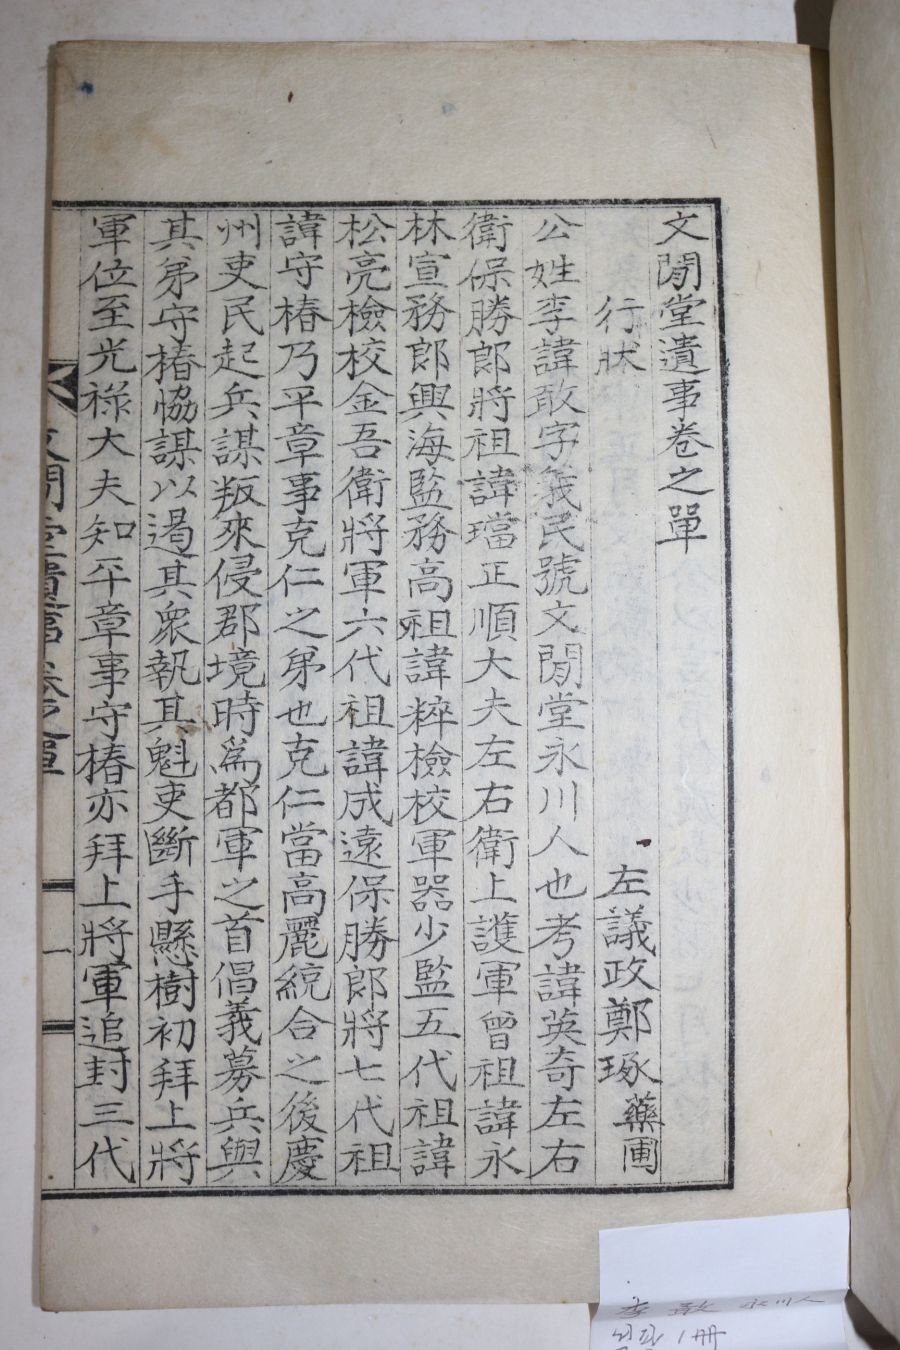 文閒堂遺事卷之單
行狀
左議政鄭琢藥圃
公姓李諱敢字義民號文閒堂永川人也考諱英奇左右
衛保勝郎將祖諱璫正順大夫左右衛上護軍曾祖諱永
林宣務郎興海監務高祖諱粹檢校軍器少監五代祖諱
松亮檢校金吾衛將軍六代祖諱成遠保勝郎將七代祖
諱守椿乃平章事克仁之弟也克仁當高麗統合之後慶
州吏民起兵謀叛來侵郡境時爲都軍之首倡義募兵與
其弟守椿恊謀以遏其衆執其魁吏斷手懸樹初拜上將
軍位至光祿大夫知平章事守椿亦拜上將軍追封三代
文閒堂遺事卷之單
一
李敢 永川人
1冊